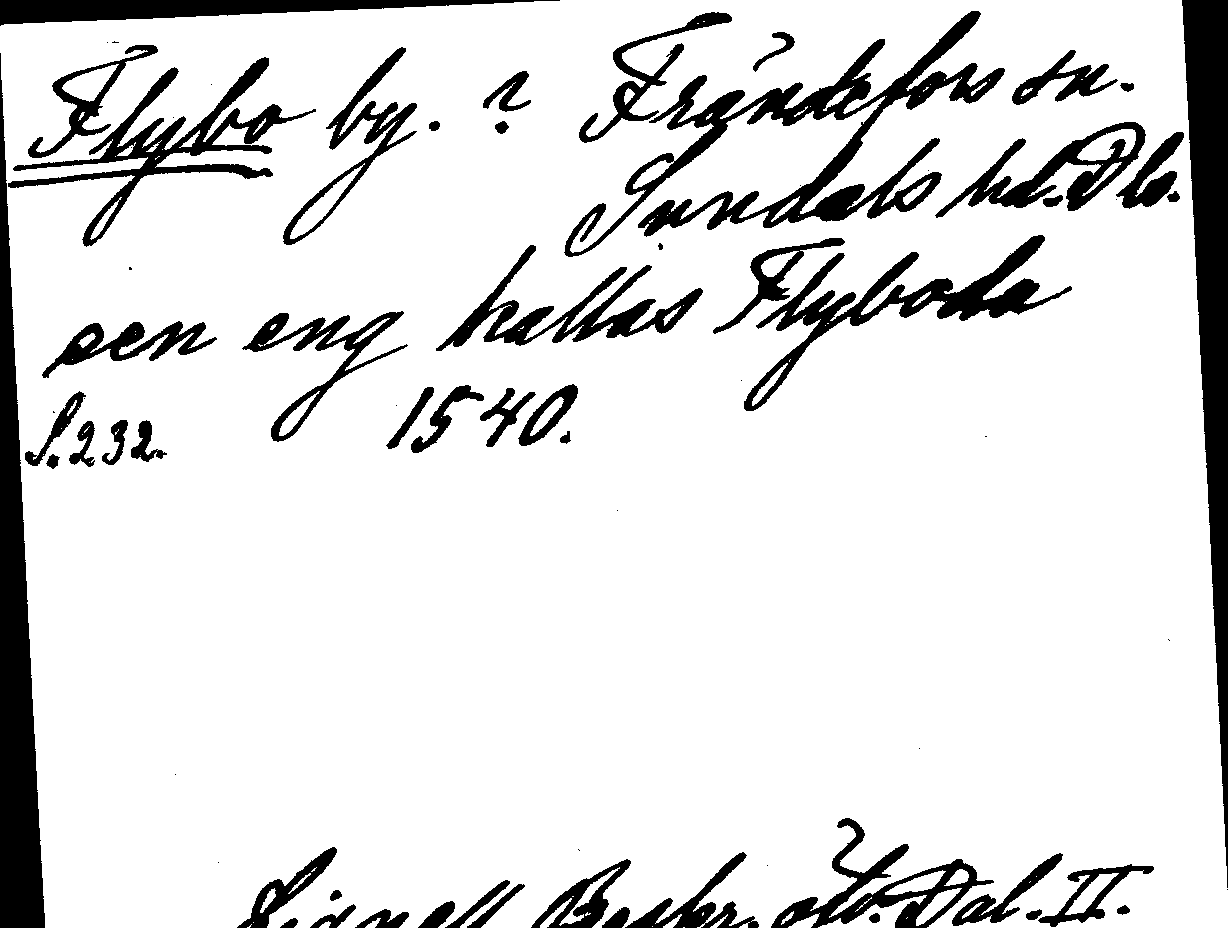 Flybo by. ? Frändefors sn.
Sundals hd. Dls.
een eng kallas Flyboda
S. 232. 1540.
Lignell Beskr. öfv. Dal. II.